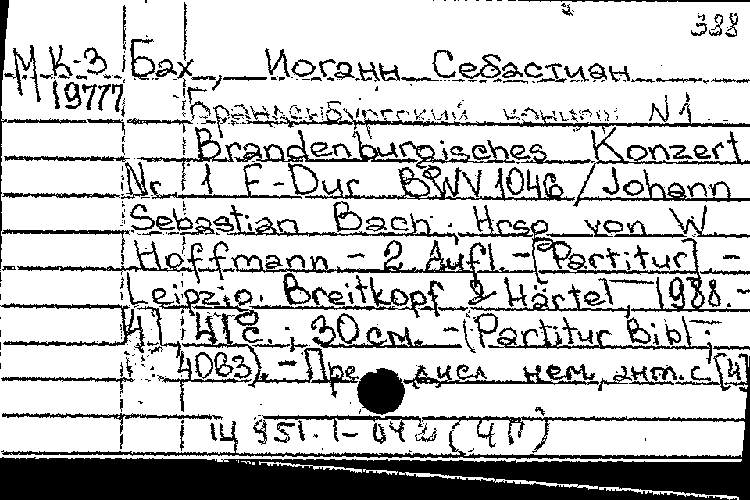 388
М К-3 Бах, Иоганн Себастиан
19777 Бранденбургский концерт N1
Brandenburgisches Konzert
Nr 1 F-Dur BWV 1046 / Johann
Sebastian Bach; Hrsg von W.
Hoffmann. - 2. Aufl. - [Partitur]. -
Leipzig. Breitkopf & Härtel, 1988. -
[4] 41 с.; 30 см. - (Partitur Bibl;
4063). - Пре дисл нем, англ. с [4]
14 951. 1-04 (4П)